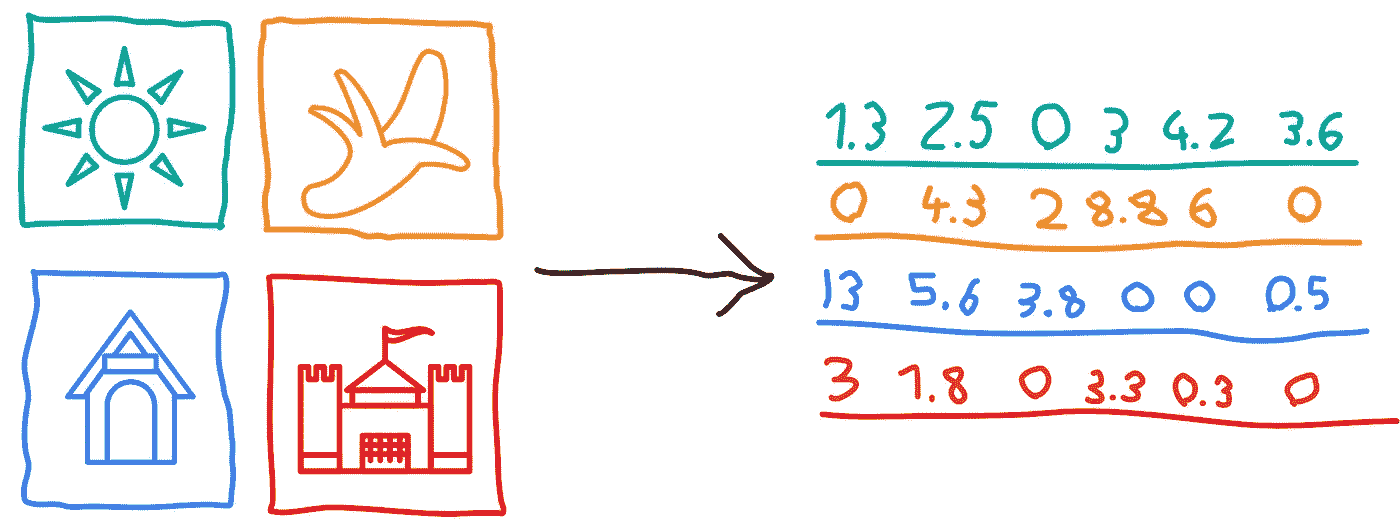 1.3 2.5 0 3 4.2 3.6
0 4.3 2 8.8 6 0
13 5.6 3.8 0 0 0.5
3 1.8 0 3.3 0.3 0